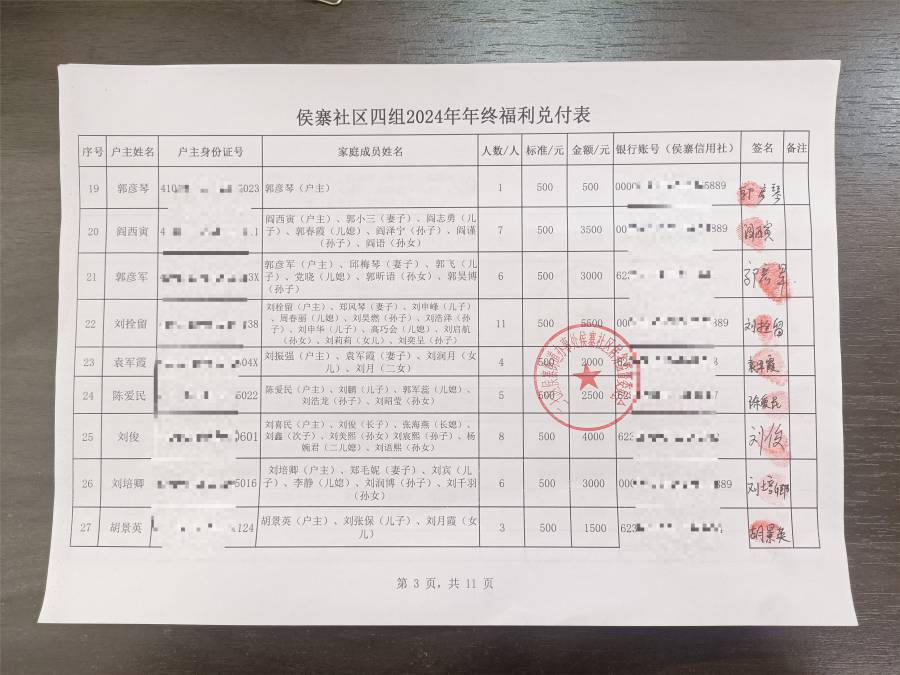 侯寨社区四组2024年年终福利兑付表
序号 户主姓名 户主身份证号 家庭成员姓名 人数/人 标准/元 金额/元 银行账号（侯寨信用社） 签名 备注
19 郭彦琴 410 5023 郭彦琴（户主） 1 500 500 0000 5889 郭彦琴
20 阎西寅 4 1 阎西寅（户主）、郭小三（妻子）、阎志勇（儿
子）、郭春霞（儿媳）、阎泽宁（孙子）、阎谨
（孙子）、阎语（孙女） 7 500 3500 00 889 阎西寅
21 郭彦军 3X 郭彦军（户主）、邱梅琴（妻子）、郭飞（儿
子）、党晓（儿媳）、郭昕语（孙女）、郭昊博
（孙子） 6 500 3000 62 郭彦军
22 刘拴留 38 刘拴留（户主）、郑风琴（妻子）、刘申峰（儿子）
、周春丽（儿媳）、刘昊燃（孙子）、刘浩泽（孙
子）、刘申华（儿子）、高巧会（儿媳）、刘启航
（孙子）、刘莉莉（女儿）、刘奕呈（孙子） 11 500 5500 000 889 刘拴留
23 袁军霞 04X 刘振强（户主）、袁军霞（妻子）、刘润月（女
儿）、刘月（二女） 4 500 2000 62 袁军霞
24 陈爱民 5022 陈爱民（户主）、刘鹏（儿子）、郭军蕊（儿媳）、
刘浩龙（孙子）、刘昭莹（孙女） 5 500 2500 623 7 陈爱民
25 刘俊 0601 刘喜民（户主）、刘俊（长子）、张海燕（长媳）、
刘鑫（次子）、刘奕熙（孙女）刘宸熙（孙子）、杨
婉君（二儿媳）、刘语熙（孙女） 8 500 4000 623 刘俊
26 刘培卿 5016 刘培卿（户主）、郑毛妮（妻子）、刘宾（儿
子）、李静（儿媳）、刘润博（孙子）、刘千羽
（孙女） 6 500 3000 889 刘培卿
27 胡景英 124 胡景英（户主）、刘张保（儿子）、刘月霞（女
儿） 3 500 1500 623 胡景英
第 3 页，共 11 页